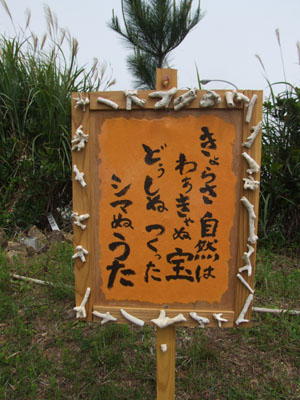 きょらさ自然は
わきゃぬ宝
どぅしぬつくった
シマぬうた